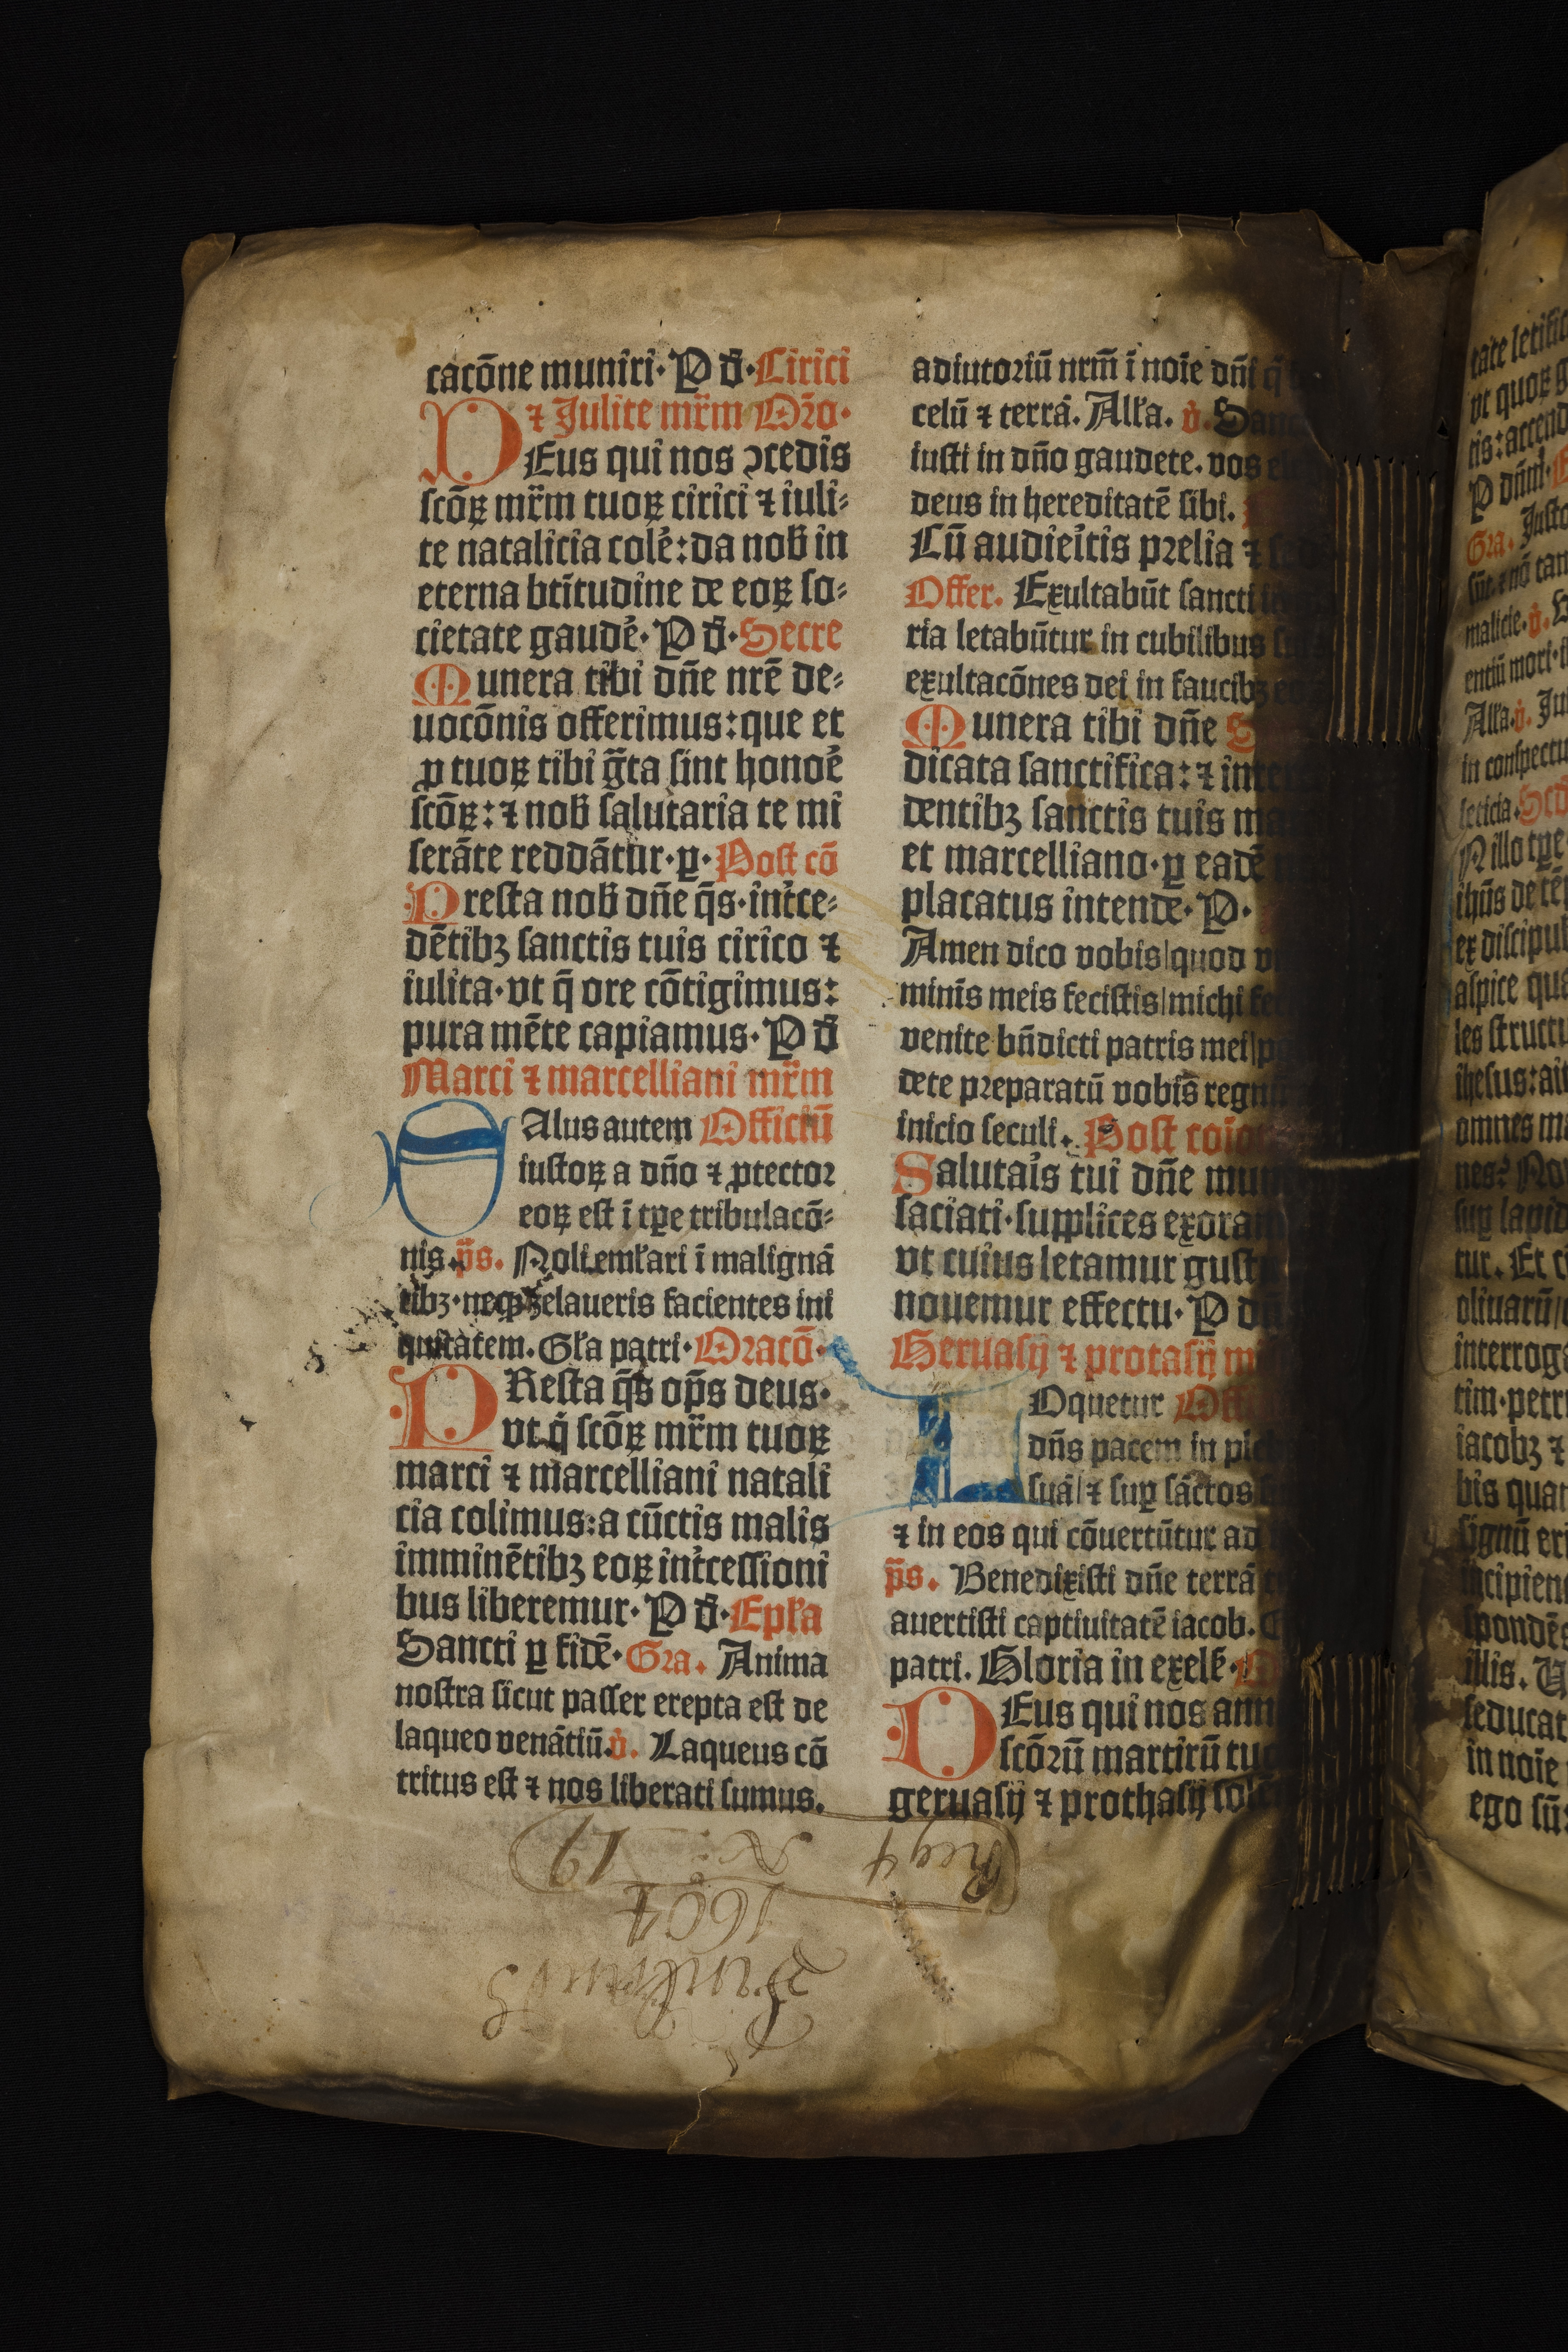 cacōne muniri· P d̄· Cirici
⁊ Julite mr̄m Orō·
DEus qui nos ꝯcedis
scōꝝ mr̄m tuoꝝ cirici ⁊ iuli⸗
te natalicia colē: da nob̄ in
eterna btītudine de eoꝝ so⸗
cietate gaudē· P d̄· Secre
Munera tibi dn̄e nr̄e de⸗
uocōnis offerimus: que et
ꝓ tuoꝝ tibi gr̄ta sint honoē
scōꝝ: ⁊ nob̄ salutaria te mi
serāte reddātur· ꝑ· Post cō
Presta nob̄ dn̄e q̄s· int̄ce⸗
dētibꝫ sanctis tuis cirico ⁊
iulita· vt q̄ ore cōtigimus:
pura mēte capiamus· P d̄
Marci ⁊ marcelliani mr̄m
SAlus autem Officiū
iustoꝝ a dn̄o ⁊ ꝓtector
eoꝝ est ī tꝑe tribulacō⸗
nis. p̄s. Noli eml̄ari ī malignā
tibꝫ· neqꝫ zelaueris facientes ini
quitatem. Gl̄a patri· Oracō·
PResta q̄s op̄s deus·
vt q̄ scōꝝ mr̄m tuoꝝ
marci ⁊ marcelliani natali
cia colimus: a cūctis malis
imminētibꝫ eoꝝ int̄cessioni
bus liberemur· P d̄· Epl̄a
Sancti ꝑ fidē· Gra. Anima
nostra sicut passer erepta est de
laqueo venātiū. v̄. Laqueus cō
tritus est ⁊ nos liberati sumus.
adiutoriū nrm̄ ī noīe dn̄i q̄
celū ⁊ terrā. All̄a. v̄. Sanc
iusti in dn̄o gaudete. vos e
deus in hereditatē sibi.
Cū audieītis prelia ⁊
Offer. Exultabūt sancti
ria letabūtur in cubilibus
exultacōnes dei in faucibꝫ
Munera tibi dn̄e
dicata sanctifica: ⁊ inter
dentibꝫ sanctis tuis ma
et marcelliano· ꝑ eadē
placatus intende· P·
Amen dico vobis|quod v
minīs meis fecistis|michi fe
venite bn̄dicti patris mei|p
dete preparatū vobis̄ regn
inicio seculi. Post coīo
Salutaīs tui dn̄e mun
saciati· supplices exoram
vt cuius letamur gust
nouemur effectu· P dn̄
Geruasij ⁊ protasij m
LOquetur Offi
dn̄s pacem in ple
suā|⁊ suꝑ sāctos
⁊ in eos qui cōuertūtur ad
p̄s. Benedixisti dn̄e terrā
auertisti captiuitatē iacob.
patri. Gloria in excel̄·
DEus qui nos ann
scōrū martirū tuo
geruasij ⁊ prothasij sol
Reg 4 N: 19
1604
tate letific
vt quoꝝ
tis: accend
P dn̄m·
Gra. Justo
sūt. ⁊ nō tan
malicie. v̄.
entiū mori·
All̄a. v̄. Ju
in conspectu
leticia. Sed
N illo tꝑe
ihūs de tē
ex discipul
aspice qua
les structu
ihesus: ait
omnes ma
nes? No
suꝑ lapid
tur. Et
oliuarū
interroga
tim· petr
iacobꝫ ⁊
bis quan
signū eri
incipien
spondēs
illis. U
seducat
in noīe
ego sū: